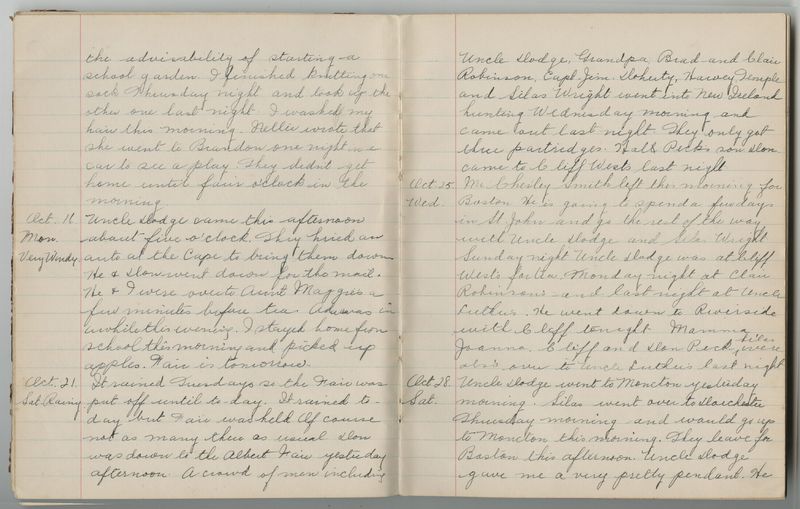 the advisability of starting a
school garden. I finished knitting one
sock Thursday night and took up the
other one last night. I washed my
hair this morning. Nellie wrote that
she went to Brandon one night in a
car to see a play. They didn't get
home until four o'clock in the
morning.
Oct. 16 Uncle Dodge came this afternoon
Mon. about five o'clock. They hired an
Very Windy. auto at the Cape to bring them down
He & Don went down for the mail.
He & I were over to Aunt Maggie's a
few minutes before tea. was in
awhile this evening. I stayed home from
school this morning and picked up
apples. Fair is tomorrow.
Oct. 21. It rained Tuesday so the Fair was
Sat. Rainy put off until to day. It rained to
day but Fair was held. Of course
not as many there as usual. Don
was down to the Albert Fair yesterday
afternoon. A crowd of men including
Uncle Dodge, Grandpa, Brad and Clair
Robinson, Capt. Jim Doherty, Harvey Temple
and Silas Wright went into New Ireland
hunting Wednesday morning and
came out last night. They only got
three partredges. Halt Peck's son Don
came to Cliff West's last night
Oct. 25. Mr. Chesley Smith left this morning for
Wed. Boston. He is going to spend a few days
in St John and go the rest of the way
with Uncle Dodge and Silas Wright
Sunday night Uncle Dodge was at Cliff
West's for tea. Monday night at Clair
Robinson's and last night at Uncle
Luther's. He went down to Riverside
with Cliff tonight. Mamma,
Joanna, Cliff and Don Peck, Silas were
over to Uncle Luther's last night
Oct. 28. Uncle Dodge went to Moncton yesterday
Sat. morning. Silas went over to Dorchester
Thursday morning and would go up
to Moncton this morning. They leave for
Boston this afternoon. Uncle Dodge
gave me a very pretty pendant. He